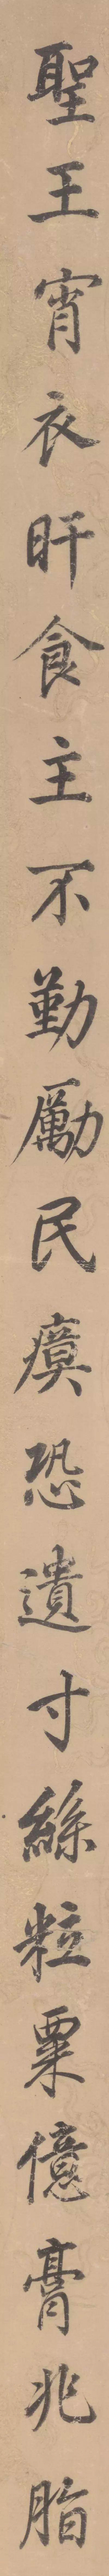 聖王宵衣旰食主不勤勵民瘼恐遺寸絲粒粟億膏兆脂